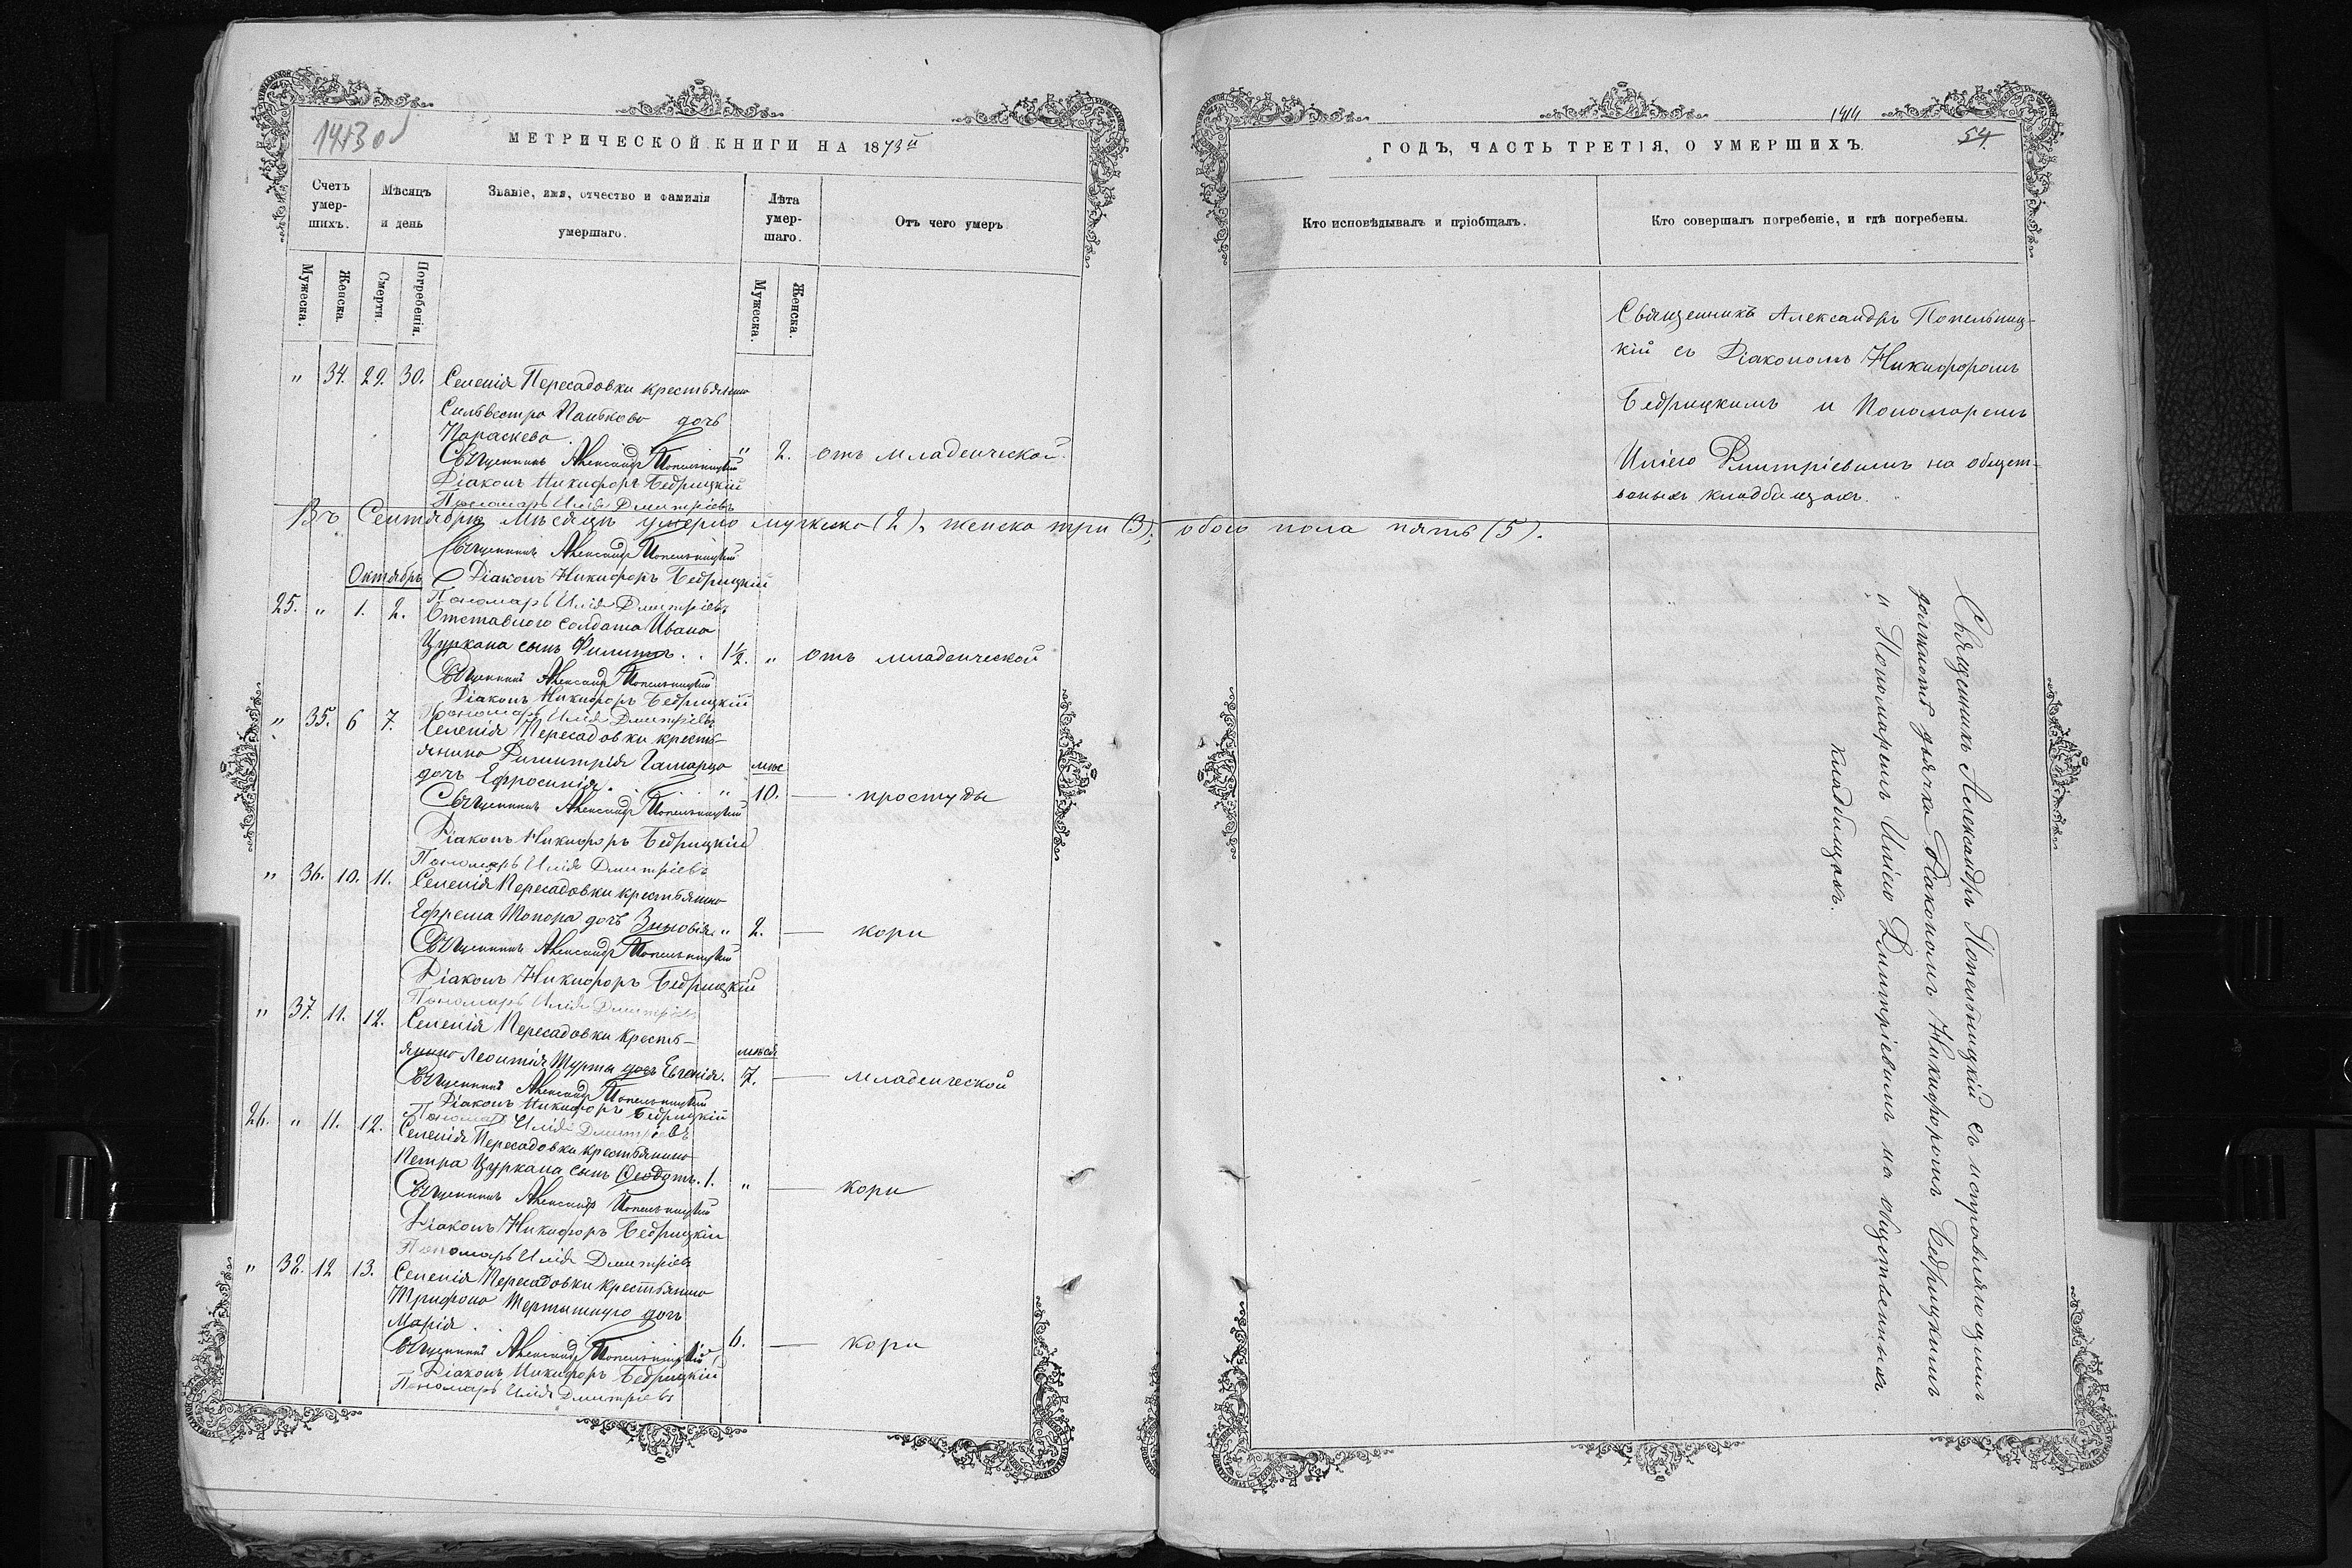 1413 об
МЕТРИЧЕСКОЙ КНИГИ НА 1873й
Счетъ умершихъ.
Мѣсяцъ и день
Званіе, имя, отчество и фамилія умершаго.
Лѣта умершаго.
Отъ чего умеръ
Мужеска.
Женска.
Смерти.
Погребенія.
Мужеска.
Женска.
" 34. 29. 30. Селенія Пересадовки крестьянина
Сильвестра Панькова дочь
Параскева. " 2. отъ младенческой.
Священникъ Александръ Попельницкій
Діаконъ Никифоръ Бедрицкій
Пономарь Илія Дмитріевъ
Въ Сентябрѣ мѣсяцѣ умерло мужеска (2), женска три (3); обоего пола пять (5).
Священникъ Александръ Попельницкій
Діаконъ Никифоръ Бедрицкій
Октябрь
Пономарь Илія Дмитріевъ
25. " 1. 2. Отставного солдата Ивана
Цуркана сынъ Филиппъ. . 1½. " отъ младенческой
Священникъ Александръ Попельницкій
Діаконъ Никифоръ Бедрицкій
Пономарь Илія Дмитріевъ
" 35. 6 7. Селенія Пересадовки кресть-
янина Димитрія Гамарца мѣс
дочь Ефросинія. " 10. — простуды
Священникъ Александръ Попельницкій
Діаконъ Никифоръ Бедрицкій
Пономарь Илія Дмитріевъ
" 36. 10. 11. Селенія Пересадовки крестьянина
Ефрема Топора дочь Зиновія. " 2. — кори
Священникъ Александръ Попельницкій
Діаконъ Никифоръ Бедрицкій
Пономарь Илія Дмитріевъ
" 37. 11. 12. Селенія Пересадовки кресть-
янина Леонтія Турты дочь Евгенія. 7. — младенческой
Священникъ Александръ Попельницкій
Діаконъ Никифоръ Бедрицкій
Пономарь Илія Дмитріевъ
26. " 11. 12. Селенія Пересадовки крестьянина
Петра Цуркана сынъ Ѳеодотъ. 1. " — кори
Священникъ Александръ Попельницкій
Діаконъ Никифоръ Бедрицкій
Пономарь Илія Дмитріевъ
" 38. 12 13. Селенія Пересадовки крестьянина
Трифона дочь
Марія. 6. — кори
Священникъ Александръ Попельницкій
Діаконъ Никифоръ Бедрицкій
Пономарь Илія Дмитріевъ
1414
54.
ГОДЪ, ЧАСТЬ ТРЕТІЯ, О УМЕРШИХЪ.
Кто исповѣдывалъ и пріобщалъ.
Кто совершалъ погребеніе, и гдѣ погребены.
Священникъ Александръ Попельниц-
кій съ Діакономъ Никифоромъ
Бедрицкимъ и Пономаремъ
Иліею Димитріевымъ на общест-
венныхъ кладбищахъ.
Священникъ Александръ Попельницкій съ исправляющимъ
должность дьячка Діакономъ Никифоромъ Бедрицкимъ
и Пономаремъ Иліею Димитріевымъ на общественныхъ
кладбищахъ.